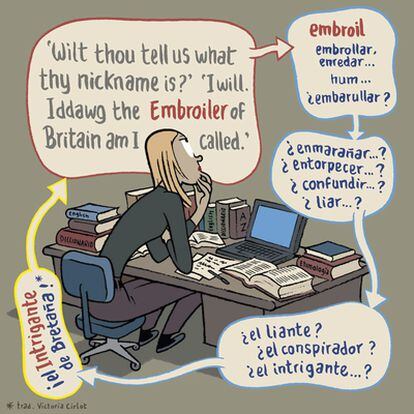 'Wilt thou tell us what
thy nickname is?' 'I will.
Iddawg the Embroiler of
Britain am I called.'
embroil
embrollar,
enredar...
hum...
¿embarullar?
¿enmarañar...?
¿entorpecer...?
¿confundir...?
¿liar...?
¿el liante?
¿el conspirador?
¿el intrigante...?
¡el Intrigante
de Bretaña!*
english
DICCIONARIO
A
Z
Etimología
* trad. Victoria Cirlot